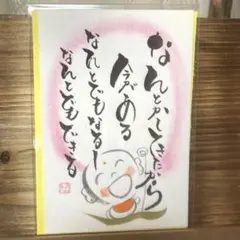 なんとかしてきたから
今がある
なんとでもなるし
なんとでもできる